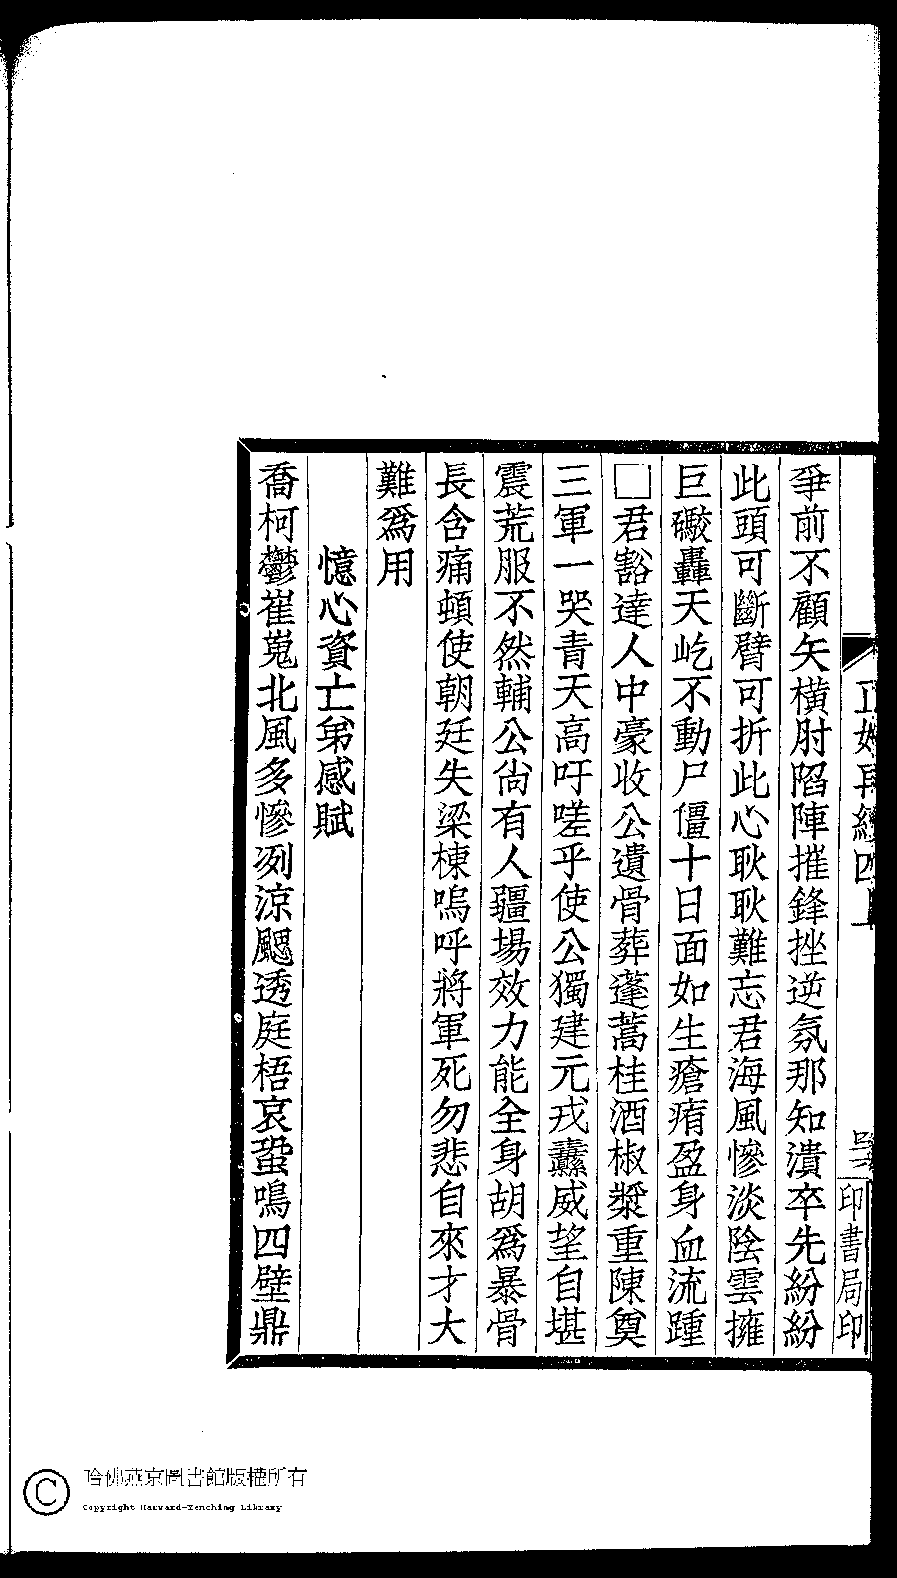 爭前不顧矢橫肘陷陣摧鋒挫逆氛那知潰卒先紛紛
此頭可斷臂可折此心耿耿難忘君海風慘淡陰雲擁
巨礮轟天屹不動尸僵十日面如生瘡痏盈身血流踵
□君豁達人中豪收公遺骨葬蓬蒿桂酒椒漿重陳奠
三軍一哭青天高吁嗟乎使公獨建元戎纛威望自堪
震荒服不然輔公尙有人疆場效力能全身胡爲暴骨
長含痛頓使朝廷失梁棟嗚呼將軍死勿悲自來才大
難爲用
憶心資亡弟感賦
喬柯鬱崔嵬北風多慘冽涼颸透庭梧哀蛩鳴四壁鼎
印書局印
哈佛燕京圖書館版權所有
Copyright Harvard-Yenching Library